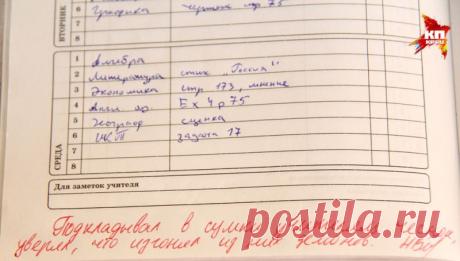 ВТОРНИК
6 Графика чертёж стр 75
7
8
КП
KP.RU
1 Алгебра
2 Литература стих "Россия"
3 Экономика стр 173, мнение
4 Англ. яз. Ex 4 p 75
5 Географ сценка
6 ИКТ задача 17
7
8
СРЕДА
Для заметок учителя
Подкладывал в сумки чеснок,
уверял, что изгонял из них демонов.
postila.ru